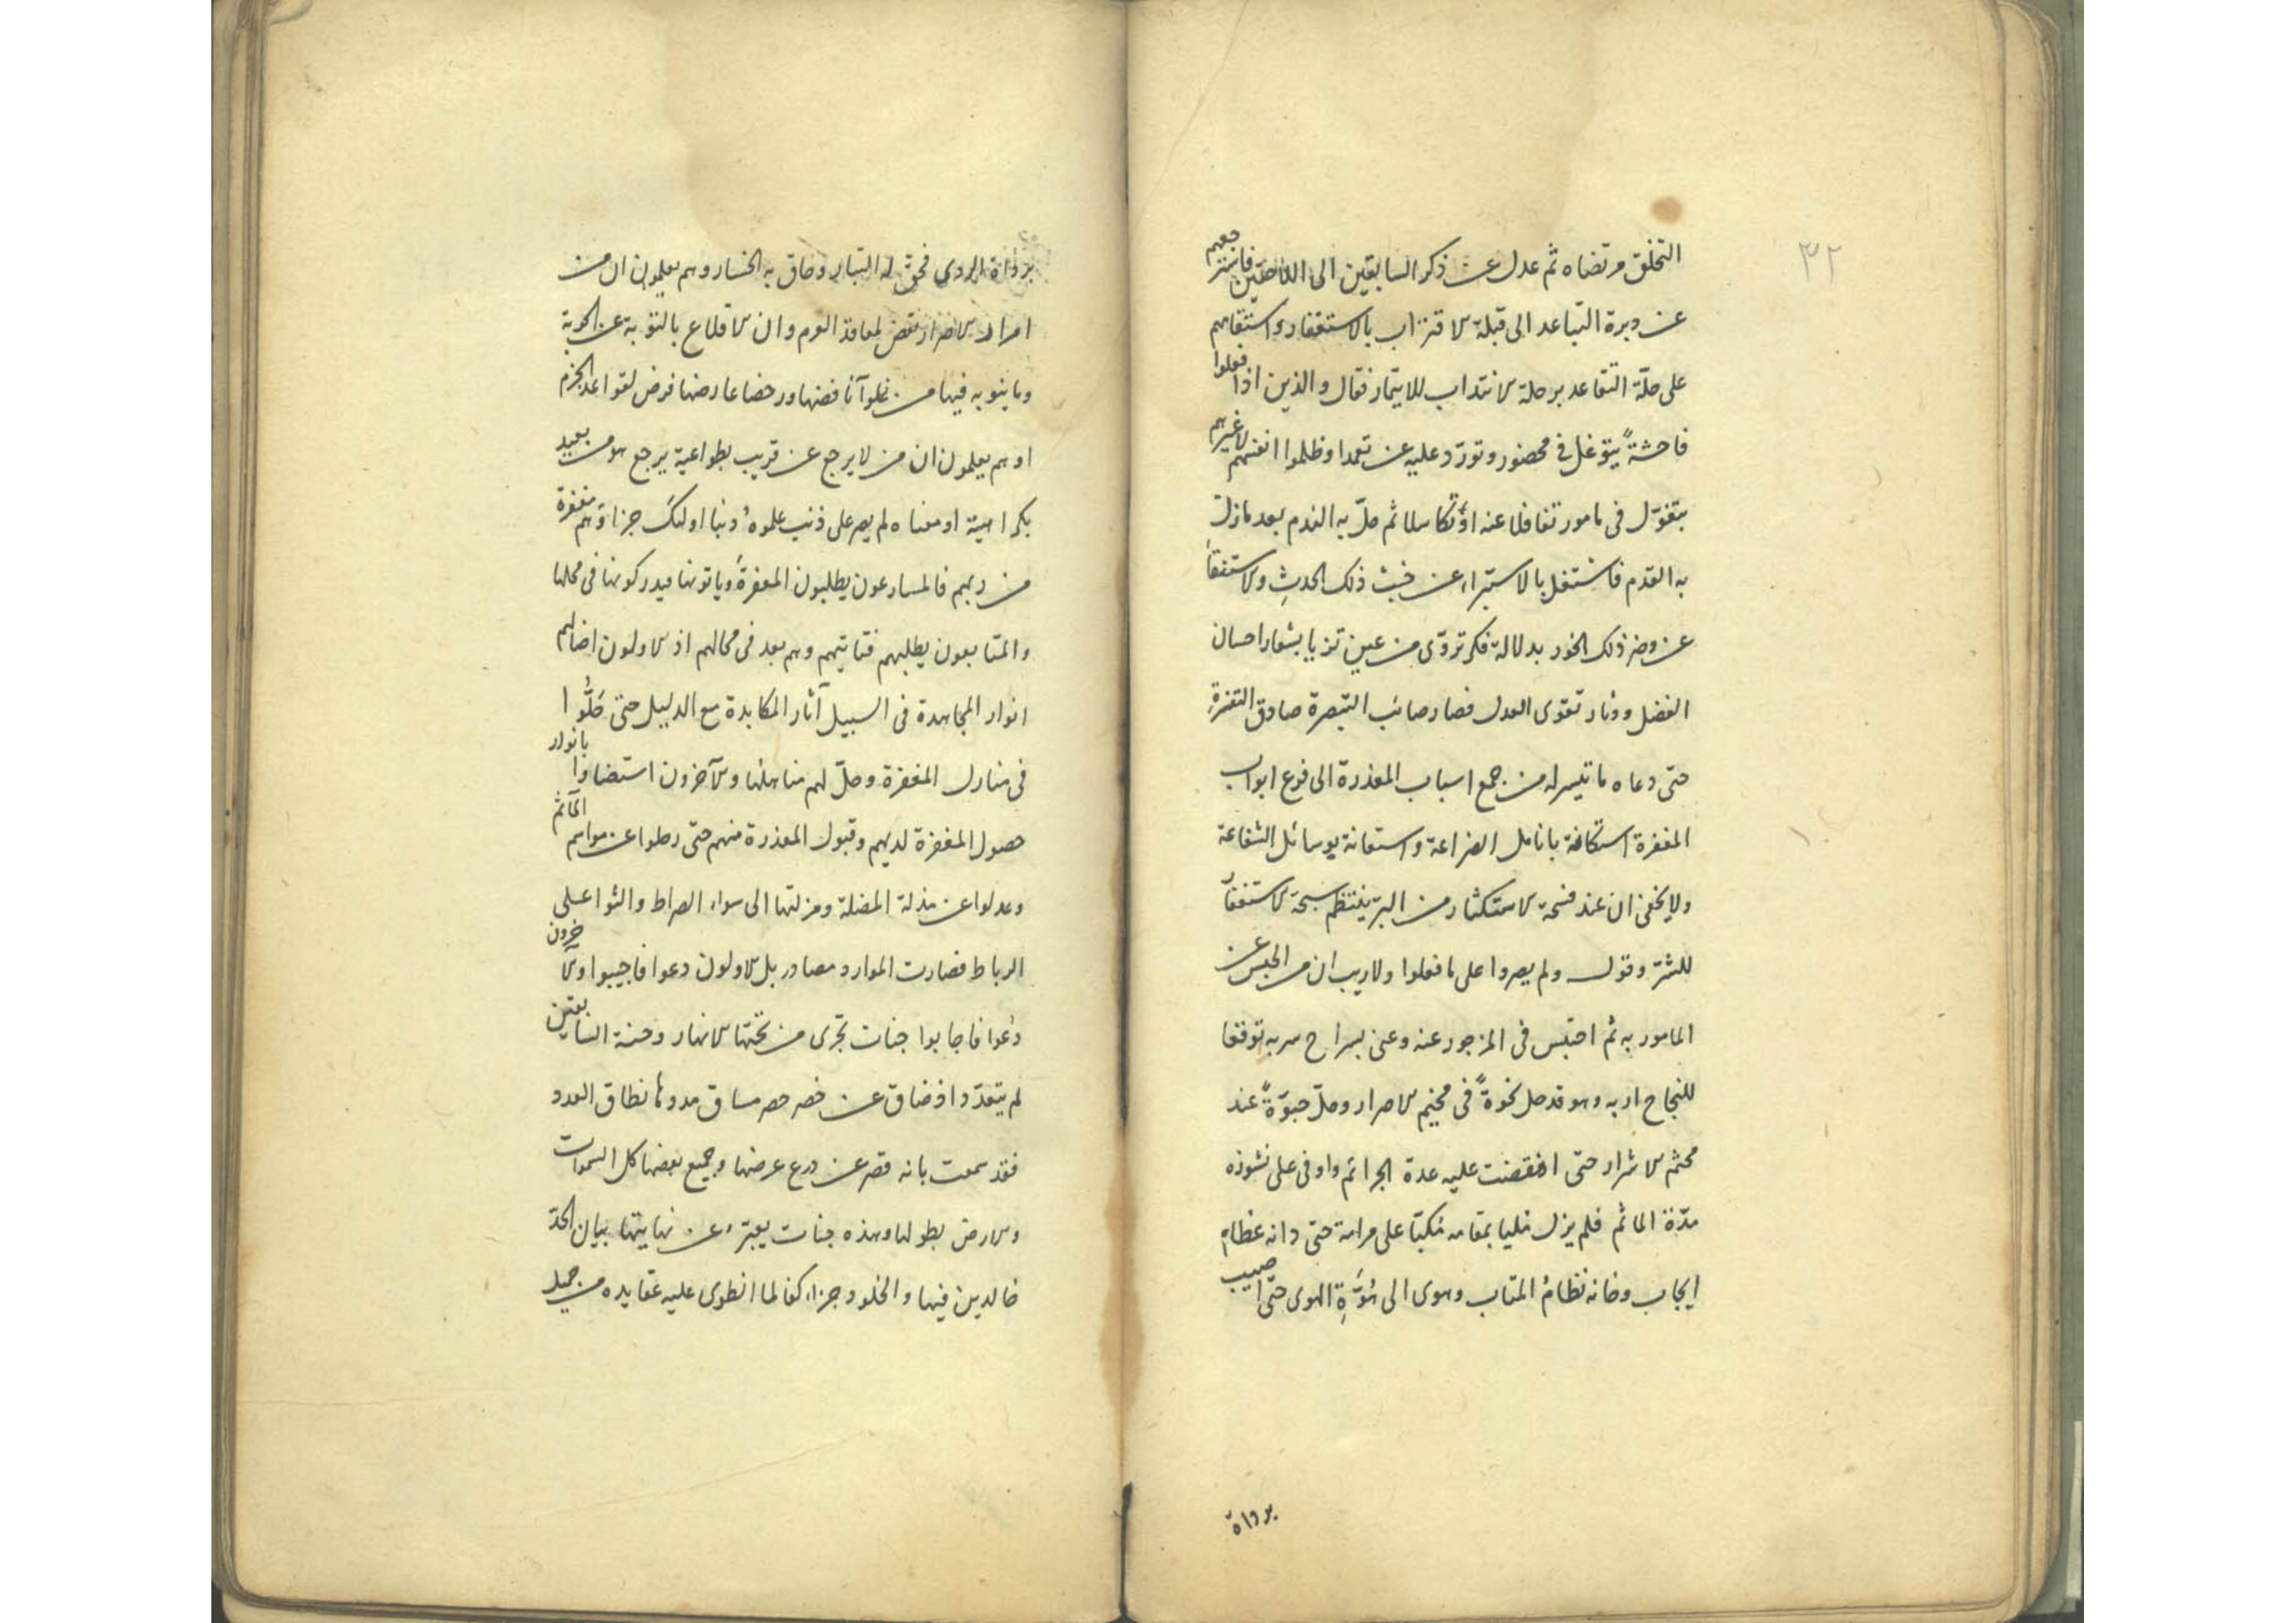 ٣٢
التخلق مرتضاه ثم عدل عن ذكر السابقين الى اللاحقين فاسترجعهم
عن دبرة التباعد الى قبلة الاقتراب بالاستغفار واستقامهم
على حلة التقاعد برحلة الانتداب للايتمار فقال والذين اذا فعلوا
فاحشة بتوغل فى محضور وتورد عليه عن تعمد او ظلموا انفسهم لا غيرهم
بتغول فى مامور تغافلا عنه او تكاسلا ثم حل به الندم بعد ما زلت
به القدم فاشتغل بالاستبراء عن خبث ذلك الحدث والاستنقاء
عن وضر ذلك الخور بدلالة فكر تروى من عين تزيا بشعار احسان
الفضل ودثار تقوى العدل فصار صائب التبصرة صادق التفزة
حتى دعاه ما تيسر له من جمع اسباب المعذرة الى قرع ابواب
المغفرة استكافة بانامل الضراعة واستعانة بوسائل الشفاعة
ولا يخفى ان عند فسحة الاستكثار من البر ينتظم سبحة الاستغفار
للشر وقوله ولم يصروا على ما فعلوا ولا ريب ان من الحبس عن
المامور به ثم احتبس فى المزجور عنه وعنى بسراح سربه توقفا
للنجاح اربه وهو قد حل نخوة فى مخيم الاصرار وحل حبوة عند
محثم الاشرار حتى انقضت عليه عدة الجرائم واوفى على نشوزه
مدة الماثم فلم يزل مليا بمقامه مكبا على مرامه حتى دانه عظام
ايجاب وخانه نظام المتاب وهوى الى هوة الهوى حتى اصيب
برداة
برداة الردى فحق له التبار وحاق به الخسار وهم يعلمون ان من
امرار الاصرار نقض لمعاقد اللوم وان الاقلاع بالتوبة عن الحوبة
وما ينوبه فيها من غلو آنا فضها ورحضا عارضها فرض لقواعد الحزم
او هم يعلمون ان من لا يرجع عن قريب بطواعية يرجع لا من بعيد
بكراهية او معناه لم يصر على ذنب علموه دنبا اولئك جزاؤهم مغفرة
من ربهم فالمسارعون يطلبون المغفرة وياتونها فيدركونها فى محلها
والمتابعون يطلبهم فتاتيهم وهم بعد فى محالهم اذ الاولون اضالهم
انوار المجاهدة فى السبيل آثار المكابدة مع الدليل حتى حلوا
فى منازل المغفرة وحل لهم مناهلها والآخرون استضاؤا بانوار
حصول المغفرة لديهم وقبول المعذرة منهم حتى رحلوا عن مواسم المآثم
وعدلوا عن مذلة المضلة ومزلتها الى سواء الصراط والثوا على
الرباط فصارت الموارد مصادر بل الاولون دعوا فاجيبوا والآخرون
دعوا فاجابوا جنات تجرى من تحتها الانهار وجنة السابقين
لم يتعدد اذ ضاق عن خصر حصر مساق مدودها نطاق العدد
فقد سمعت بانه قصر عن درع عرضها وجميع بعضها كل السموات
والارض بطولها وهذه جنات يعبر عن نهايتها بيان الحد
خالدين فيها والخلود جزاء كفا لما انطوى عليه عقايده من جميل